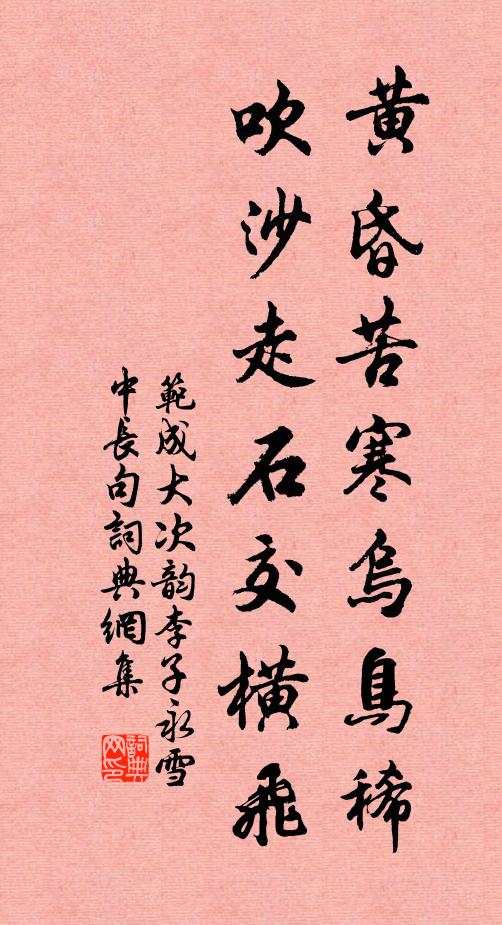 黃昏苦寒烏鳥稀
吹沙走石交橫飛
範成大次韵李子永雪
中長句詞典網集
詞典
网印